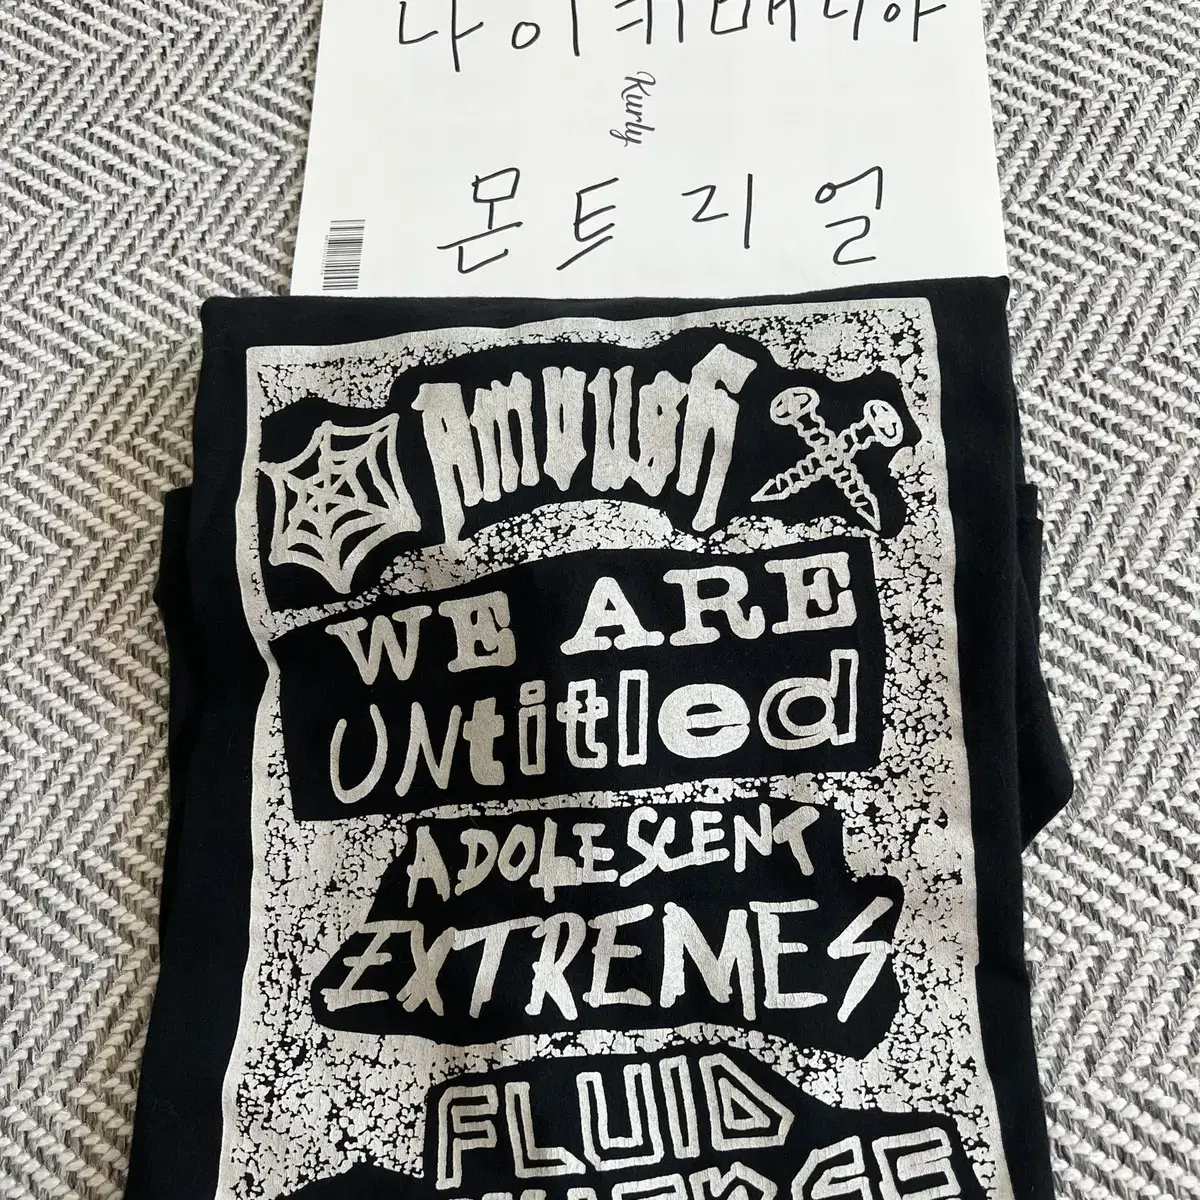 나이키매니아
Kurly
몬트리얼
AMBUSH
WE ARE
UNtitled
ADOLESCENT
EXTREMES
FLUID